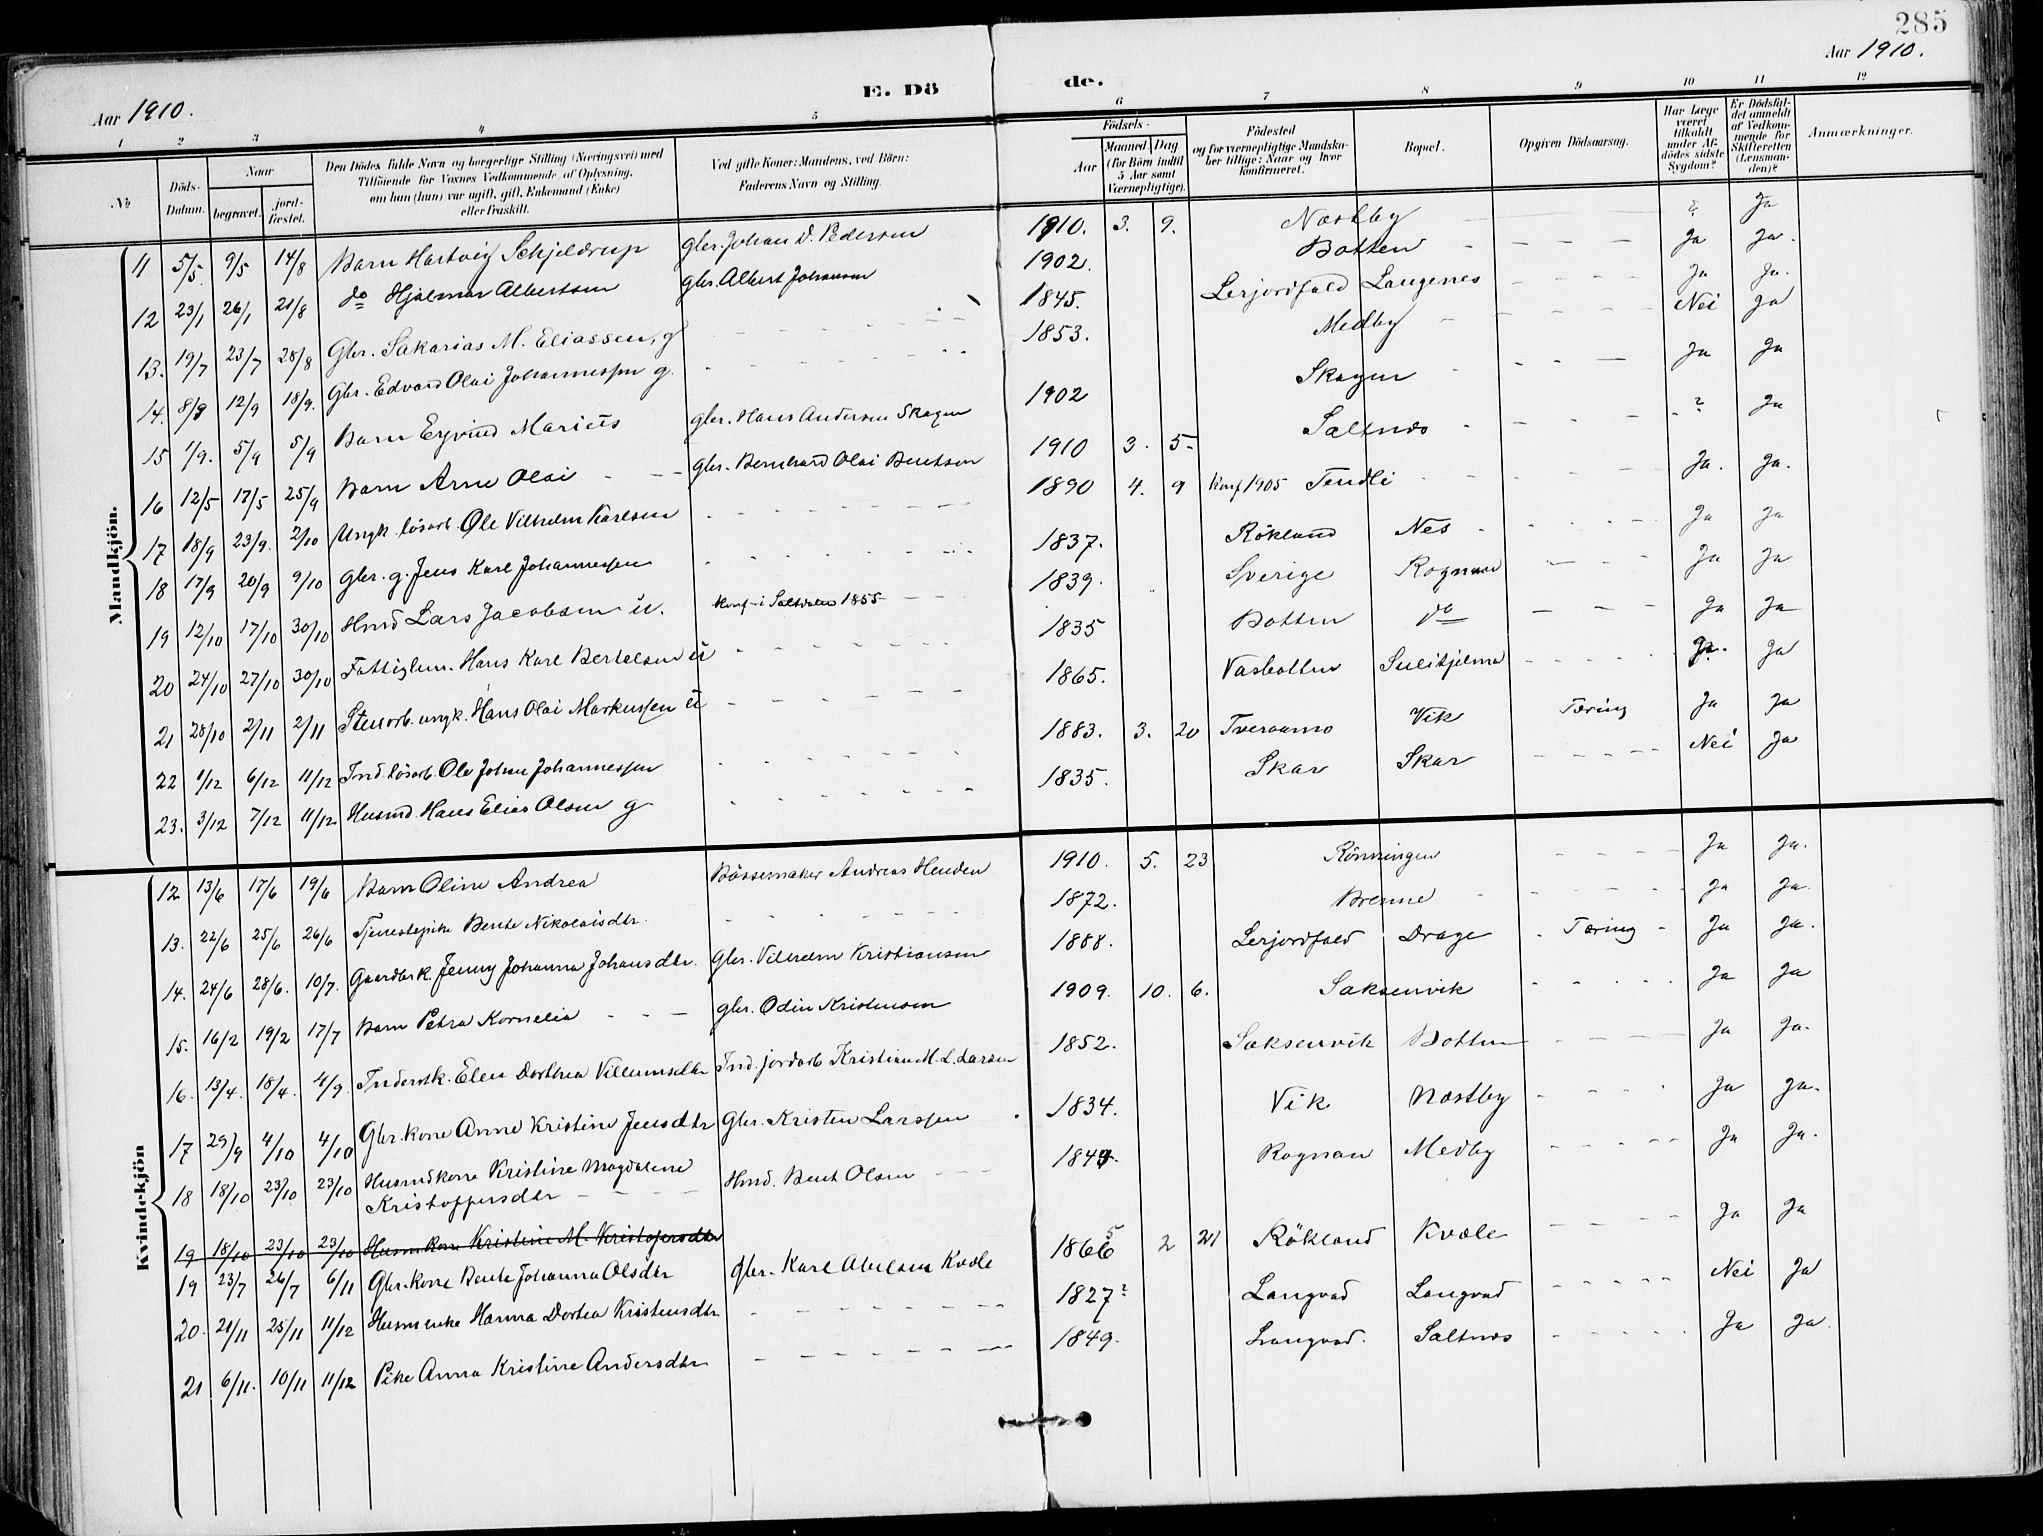 285
Aar 1910.
E. Dö de.
Aar 1910.
1 2 3 4 5 6 7 8 9 10 11 12
No
Döds-Datum.
Naar
begravet.
jord-fæstet.
Den Dödes fulde Navn og borgerlige Stilling (Næringsvei) med Tilföiende for Voxnes Vedkommende af Oplysning, om han (hun) var ugift, gift, Enkemand (Enke) eller fraskilt.
Ved gifte Koner: Mandens, ved Börn: Faderens Navn og Stilling.
Födsels-
Aar
Maaned. Dag
(for Börn indtil 5 Aar samt Værnepligtige).
Födested og for værnepligtige Mandskaber tillige: Naar og hvor konfirmeret.
Bopæl.
Opgiven Dödsaarsag.
Har Læge været tilkaldt under Afdödes sidste Sygdom?
Er Dödsfaldet anmeldt af Vedkommende for Skifteretten (Lensmanden)?
Anmærkninger.
Mandkjön.
11 5/5. 9/5 14/8 Barn Hartvig Schjeldrup gbr. Johan D. Pedersen 1910. 3. 9. Næstby ? Ja
12 23/1 26/1 21/8 do Hjalmar Albertsen gbr. Albert Johansen 1902. Botten Ja Ja.
13. 19/7 23/7 28/8 Gbr. Sakarias M. Eliassen, g 1845. Lerjordfald Langenes Ja Ja.
14. 8/9 12/9 18/9. Gbr. Edvard Olai Johannessen g. 1853. Medby Nei Ja
15 1/9. 5/9 5/9 Barn Eyvind Marius gbr. Hans Andersen Skagen 1902 Skagen Ja Ja
16 12/5 17/5 25/9 Barn Arne Olai gbr. Bernhard Olai Bentsen 1910 3. 5 Saltnes ? Ja
17 18/9 23/9. 2/10 Ungk. lösarb. Ole Vilhelm Karlsen 1890 4. 9 Konf 1905 Tendli Ja. Ja.
18 17/9 20/9 9/10 Gbr. g. Jens Karl Johannessen 1837. Rökland Nes Ja Ja
19 12/10 17/10 30/10 Hmd Lars Jacobsen u. Konf. i Saltdalen 1855 1839. Sverige Rognan Ja Ja
20 24/10 27/10 30/10 Fattiglem. Hans Karl Bertelsen u 1835 Botten do Ja Ja
21 28/10 2/11 2/11 Stenarb. ungk. Hans Olai Markussen u 1865. Vasbotten Sulitjelma Ja. Ja
22 1/12 6/12 11/12 Ind. lösarb. Ole Johan Johannessen 1883. 3. 20 Tveraamo Vik Tæring Ja Ja
23. 3/12 7/12 11/12 Husmd. Hans Elias Olsen g 1835. Skar Skar Nei Ja
Kvindekjön
12 13/6 17/6 19/6 Barn Oline Andrea Bössemaker Andreas Henden 1910. 5. 23 Rönningen Ja Ja.
13. 22/6 25/6 26/6 Tjenestepike Bente Nikolaisdtr. 1872. Brenne Ja Ja.
14. 24/6 28/6. 10/7. Gaardbr.k. Jenny Johanna Johansdtr. Gbr. Vilhelm Kristiansen 1888. Lerjordfald Drage Tæring Ja Ja.
15. 16/2 19/2 17/7 Barn Petra Kornelia gbr. Odin Kristensen 1909. 10. 6. Saksenvik Ja Ja
16. 13/4. 18/4. 4/9. Inderstk. Elen Dorthea Villumsdtr Ind. jordarb Kristian M. L. Larsen 1852. Saksenvik Botten Ja Ja.
17 29/9 4/10 4/10 Gbr. kone Anne Kristine Jensdtr Gbr. Kristen Larssen 1834. Vik Næstby Ja Ja.
18 18/10 23/10 23/10 Husmdkone Kristine Magdalene Kristoffersdtr Hmd. Bent Olsen 1844. Rognan Medby Ja Ja.
19 18/10 23/10 23/10 Husm.kone Kristine M. Kristofersdtr
19 23/7 26/7 6/11 Gbr.kone Bente Johanna Olsdtr Gbr. Karl Abelsen Kvæle 1866 5 2 21 Rökland Kvæle Ja Ja
20. 21/11 25/11 11/12 Husm enke Hanna Dortea Kristensdtr 1827? Langvad Langvad Nei Ja
21 6/11. 10/11 11/12 Pike Anna Kristine Andersdtr 1849. Langvad. Saltnes Ja Ja.